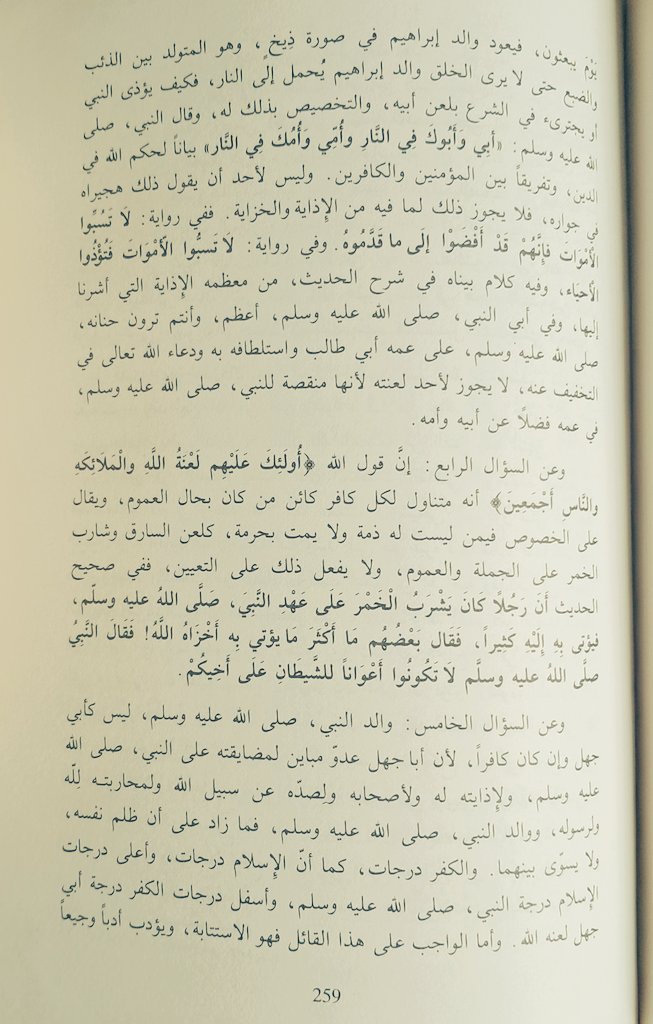 يَوْمَ يبعثون، فيعود والد إبراهيم في صورة ذِيخٍ، وهو المتولد بين الذئب
والضبع حتى لا يرى الخلق والد إبراهيم يُحمل إلى النار، فكيف يؤذى النبي
أو يجترىء في الشرع بلعن أبيه، والتخصيص بذلك له، وقال النبي، صلى
الله عليه وسلم: «أَبِي وَأَبُوكَ فِي النَّارِ وأُمِّي وَأُمُكَ فِي النَّار» بياناً لحكم الله في
الدين، وتفريقاً بين المؤمنين والكافرين. وليس لأحد أن يقول ذلك هجيراه
في جواره، فلا يجوز ذلك لما فيه من الإذاية والخزاية. ففي رواية: لاَ تَسُبِّوا
الأَمْوَاتَ فَإِنَّهُمْ قَدْ أَفْضَوْا إلَى ما قَدَّمُوهُ. وفي رواية: لاَ تَسبُّوا الأَمْوَاتَ فَتُؤْذُوا
الأحيَاء، وفيه كلام بيناه في شرح الحديث، من معظمه الإذاية التي أشرنا
إليها، وفي أبي النبي، صلى الله عليه وسلم، أعظم، وأنتم ترون حنانه،
صلى الله عليه وسلم، على عمه أبي طالب واستلطافه به ودعاء الله تعالى في
التخفيف عنه، لا يجوز لأحد لعنته لأنها منقصة للنبي، صلى الله عليه وسلم،
في عمه فضلاً عن أبيه وأمه.
وعن السؤال الرابع: إنَّ قول الله ﴿أُولَئِكَ عَلَيْهِم لَعْنَةُ اللَّهِ والْمَلَائِكَهِ
والنَّاسِ أَجْمَعِينَ﴾ أنه متناول لكل كافر كائن من كان بحال العموم، ويقال
على الخصوص فيمن ليست له ذمة ولا يمت بحرمة، كلعن السارق وشارب
الخمر على الجملة والعموم، ولا يفعل ذلك على التعيين، ففي صحيح
الحديث أَنَ رَجُلاً كَانَ يَشْرَبُ الْخَمْرَ عَلَى عَهْدِ النَّبيَ، صَلَّى اللهُ عليه وسلّم،
فيؤتى بِهِ إِلَيْهِ كَثِيراً، فَقَال بَعْضُهُم مَا أَكْثَرَ مَا يؤتي بِه أَخْزَاهُ اللَّهُ! فَقَالَ النَّبِيُ
صلَّى اللهُ عليه وسلَّم لاَ تَكُونُوا أَعْوَاناً للشَّيطَانِ عَلَى أَخِيكُمْ.
وعن السؤال الخامس: والد النبي، صلى الله عليه وسلم، ليس كأبي
جهل وإن كان كافراً، لأن أبا جهل عدوّ مباين لمضايقته على النبي، صلى الله
عليه وسلم، ولإذايته له ولأصحابه ولِصدّه عن سبيل الله ولمحاربته لِلّه
ولرسوله، ووالد النبي، صلى الله عليه وسلم، فما زاد على أن ظلم نفسه،
ولا يسوى بينهما. والكفر درجات، كما أنّ الإسلام درجات، وأعلى درجات
الإسلام درجة النبي، صلى الله عليه وسلم، وأسفل درجات الكفر درجة أبي
جهل لعنه الله. وأما الواجب على هذا القائل فهو الاستتابة، ويؤدب أدباً وجيعاً
259